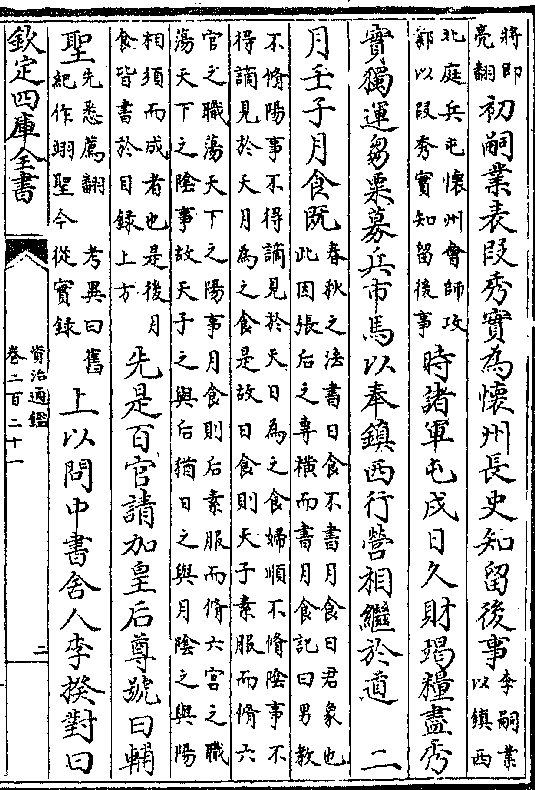 將即亮翻初嗣業表段秀實為懷州長史知留後事李嗣業以鎮西
北庭兵屯懷州會師攻鄴以段秀實知留後事時諸軍屯戍日久財竭糧盡秀
實獨運芻粟募兵市馬以奉鎮西行營相繼於道 二
月壬子月食既春秋之法書日食不書月食日君象也此因張后之專橫而書月食記曰男教
不脩陽事不得謫見於天日為之食婦順不脩陰事不得謫見於天月為之食是故日食則天子素服而脩六
官之職蕩天下之陽事月食則后素服而脩六宮之職蕩天下之陰事故天子之與后猶日之與月陰之與陽
相須而成者也是後月食皆書於目録上方先是百官請加皇后尊號曰輔
聖先悉薦翻考異曰舊紀作翊聖今從實録上以問中書舍人李揆對曰
欽定四庫全書
資治通鑑
卷二百二十一
二